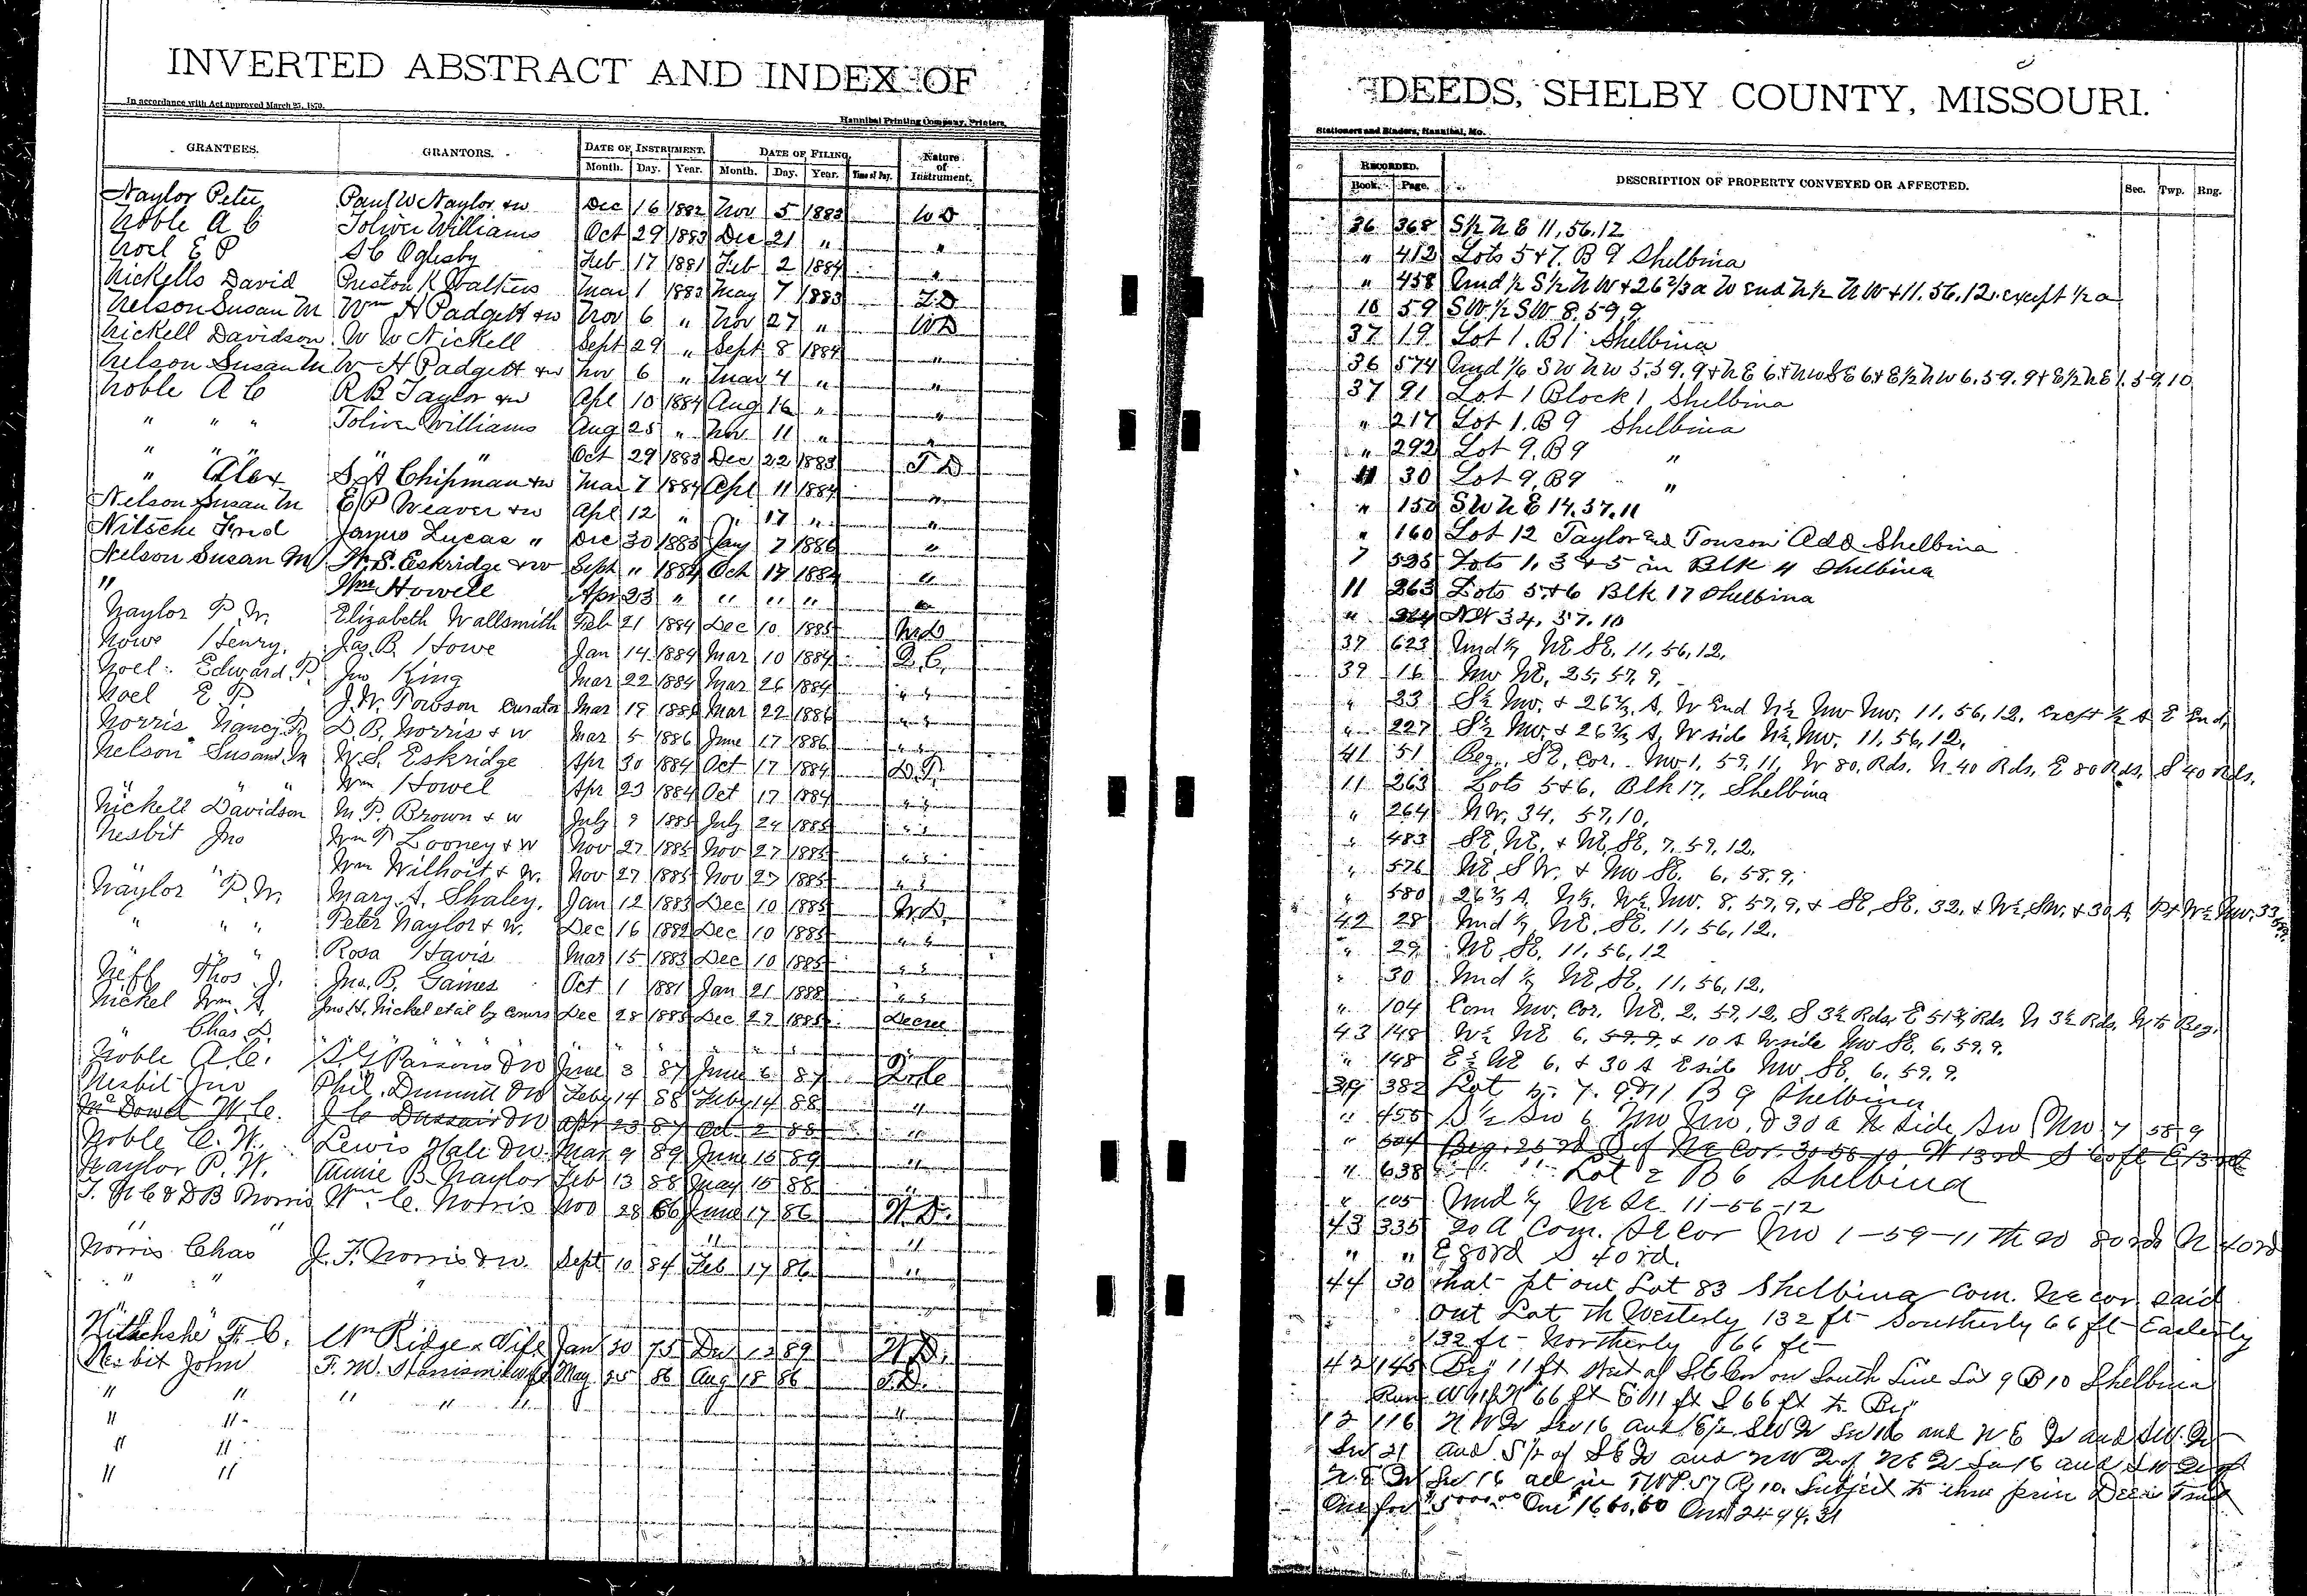 INVERTED ABSTRACT AND INDEX OF
In accordance with Act approved March 25, 1870.
Hannibal Printing Company, Printers,
GRANTEES. GRANTORS. DATE OF INSTRUMENT. DATE OF FILING. Nature of Instrument.
Month. Day. Year. Month. Day. Year. Time of Day.
Naylor Peter Paul W Naylor &w Dec 16 1882 Nov 5 1883 WD
Noble A C Toliver Williams Oct 29 1883 Dec 21 " "
Noel E P S C Oglesby Feb 17 1881 Feb 2 1884 "
Nickells David Preston K Walkers Mar 1 1883 May 7 1883 T.D
Nelson Susan M Wm H Padgett &w Nov 6 " Nov 27 " WD
Nickell Davidson W W Nickell Sept 29 " Sept 8 1884 "
Nelson Susan M W H Padgett &w Nov 6 " Mar 4 " "
Noble A C R B Taylor &w Apl 10 1884 Aug 16 " "
" " " Toliver Williams Aug 25 " Nov 11 " "
" " " " " Oct 29 1883 Dec 22 1883 T D
" Alex S. A Chipman &w Mar 7 1884 Apl 11 1884 "
Nelson Susan M E P Weaver &w Apl 12 " " 17 " "
Nitsche Fred James Lucas " Dec 30 1883 Jany 7 1886 "
Nelson Susan M W. S. Eskridge &w Sept " 1884 Oct 17 1884 "
" Wm Howell Apr 23 " " " " "
Naylor P. W. Elizabeth Wallsmith Feb 21 1884 Dec 10 1885 W.D
Nowe Henry, Jas. B. Howe Jan 14 1884 Mar 10 1884 Q. C.
Noel Edward P. Jno King Mar 22 1884 Mar 26 1884 " "
Noel E. P. J. W. Towson Curator Mar 19 1886 Mar 22 1886 " "
Norris Nancy P. D. B. Norris & w Mar 5 1886 June 17 1886 " "
Nelson Susan M W. S. Eskridge Apr 30 1884 Oct 17 1884 D.T.
" " Wm Howel Apr 23 1884 Oct 17 1884 " "
Nickell Davidson M. P. Brown & w July 9 1885 July 24 1885 " "
Nesbit Jno Wm P Looney & w Nov 27 1885 Nov 27 1885 " "
" " Wm Wilhoit & W. Nov 27 1885 Nov 27 1885 " "
Naylor P. W. Mary A. Shaley. Jan 12 1883 Dec 10 1885 W.D.
" " " Peter Naylor & w. Dec 16 1882 Dec 10 1885 " "
" " " Rosa Havis Mar 15 1883 Dec 10 1885 " "
Neff Thos. J. Jno. B. Gaines Oct 1 1881 Jan 21 1888 " "
Nickel Wm. A. Jno. H. Nickel et al by Comrs Dec 28 1885 Dec 29 1885 Decree
" Chas D. " " " " " " "
Noble A. C. Parsons &W June 3 87 June 6 87
Nesbit Jno Phil. Dimmitt &W Feby 14 88 Feby 14 88 "
McDowel W. C. J C &W Apr 23 87 Oct 2 88 "
Noble C. W. Lewis Hale &W Mar 9 89 June 15 89 "
Naylor P. W. Annie B. Naylor Feb 13 88 May 15 88 "
T. N C & D B Norris Wm. C. Norris Nov 28 66 June 17 86 W.D.
" " " "
Norris Chas J. F. Norris & w. Sept 10 84 Feb 17 86 "
" " "
F. C. Wm Ridge & Wife Jan 20 75 Dec 12 89 W.D.
Nesbit John F. M. Harrison & wife May 25 86 Aug 18 86 T.D.
" " " " " "
" "
" "
" "
DEEDS, SHELBY COUNTY, MISSOURI.
Stationers and Binders, Hannibal, Mo.
RECORDED. DESCRIPTION OF PROPERTY CONVEYED OR AFFECTED. Sec. Twp. Rng.
Book. Page.
36 368 S½ N E 11,56.12
" 412 Lots 5 & 7. B 9 Shelbina
" 458 Und ½ S½ N W & 26 2/3 a W End N½ N W & 11.56.12. except ½ a
10 59 SW ½ SW 8.59.9.
37 19 Lot 1. B 1 Shelbina
36 574 Und 1/6 S W N W 5.59.9 & N E 6. & NW SE 6 & E½ NW 6.59.9 & E½ NE 1.59.10
37 91 Lot 1 Block 1 Shelbina
" 217 Lot 1. B 9 Shelbina
" 292 Lot 9. B9 "
11 30 Lot 9, B9 "
" 150 S W N E 14.57.11
" 160 Lot 12 Taylor and Towson Add Shelbina
7 525 Lots 1, 3 & 5 in Blk 4 Shelbina
11 263 Lots 5 & 6 Blk 17 Shelbina
" 264 NW 34, 57. 10
37 623 Und ½ NE SE. 11, 56, 12.
39 16 NW NE, 25, 57, 9,
" 33 S½ NW. & 26 2/3 A, W End N½ NW NW. 11, 56, 12. Except ½ A E End,
" 227 S½ NW. & 26 2/3 A, W side N½ NW. 11, 56, 12,
41 51 Beg. SE, Cor. NW 1, 59, 11, W 80 Rds. N 40 Rds. E 80 Rds. S 40 Rds.
11 263 Lots 5 & 6, Blk 17, Shelbina
" 264 NW, 34, 57, 10,
" 483 SE, NE, & NE, SE, 7, 59, 12,
" 576 NE, SW. & NW SE. 6, 58, 9,
" 580 26 2/3 A. N½ W½ NW. 8, 57, 9, & SE, SE. 32, & W½ SW. & 30 A Pt W½ NW. 33
42 28 Und ½ NE, SE. 11, 56, 12.
" 29 NE SE, 11, 56, 12
" 30 Und ½ NE, SE, 11, 56, 12,
" 104 Com NW. Cor. NE. 2, 59, 12, S 3½ Rds, E 51 Rds. N 3½ Rds, W to Beg.
43 148 W½ NE 6, 59, 9, & 10 A W side NW SE. 6, 59. 9.
" 148 E½ NE 6, & 30 A E side NW. SE, 6, 59, 9.
39 382 Lot 5. 7. 9 & 11 B 9 Shelbina
" 455 S½ SW 6 NW NW, & 30 a N Side SW NW 7 58 9
" 504 Beg. 25 rd S of NE Cor. 30 58 10 W 13rd S 60ft E 13rd
" 638 Lot 2 B 6 Shelbina
" 105 Und ½ NE SE 11-56-12
43 335 20 A Com. SE Cor NW 1-59-11 80rds N 40rd
" " E 80rd S 40rd.
44 30 That pt out Lot 83 Shelbina Com. NE cor said
out Lot th Westerly 132 ft Southerly 66 ft Easterly
132 ft Northerly 66 ft
42 145 Beg 11 ft West of SE Cor on South Line Lot 9 B 10 Shelbina
Run W 11 ft N 66 ft E 11 ft S 66 ft to Beg
12 116 N W Qr Sec 16 and E½ SW Qr Sec 16 and N E Qr and SW. Qr
Sec 21 and S½ of SE Qr and NW Qr of NE Qr Sec 16 and SW Qr of
N. E Qr Sec 16 all in TWP. 57 Rg 10. Subject to three prior Deeds Trust
One for $5000.00 One 1660.60 One 2494.31